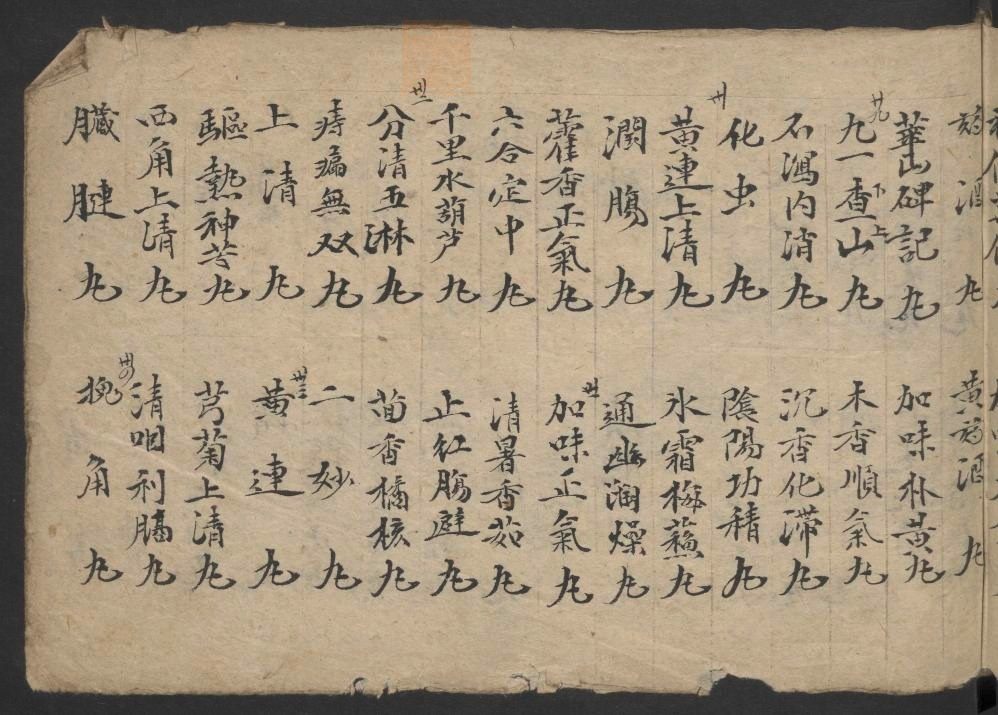 葯酒丸
華山碑記丸
廿九
九一香一山丸
下上
瀉内消丸
化虫丸
卅
黃連上清丸
潤腸丸
藿香正氣丸
六合定中丸
千里水葫芦丸
卅二
分清五淋丸
痔漏無双丸
上清丸
驅熱神芎丸
西角上清丸
臟腱丸
黃葯酒丸
加味朴黃丸
木香順氣丸
沉香化滯丸
陰陽功積丸
氷霜梅蘇丸
通幽潤燥丸
卅一
加味正氣丸
清暑香茹丸
止紅腸避丸
茴香橘核丸
二妙丸
卅三
黃連丸
芎菊上清丸
清咽利膈丸
卅四
槐角丸